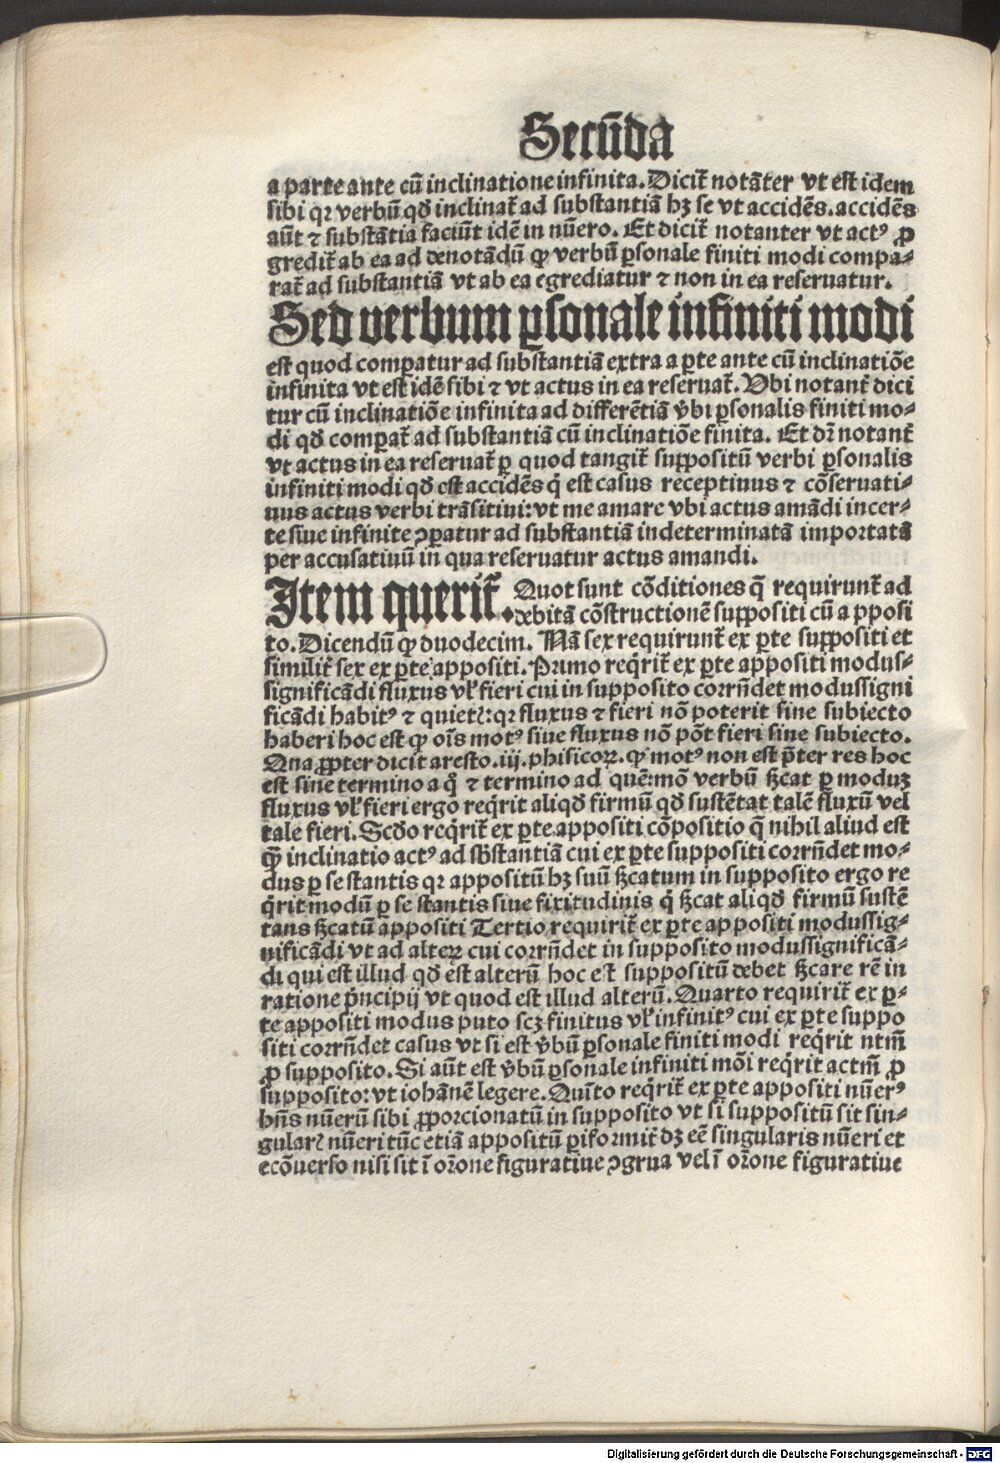 Secūda
a parte ante cū inclinatione infinita. Dicit̄ notāter vt est idem
sibi qꝛ verbū qđ inclinat̄ ad substantiā hꝫ se vt accidēs. accidēs
aūt ⁊ substātia faciūt idē in nūero. Et dicit̄ notanter vt actꝰ ꝓ
gredit̄ ab ea ad denotādū ꝙ verbū ꝑsonale finiti modi compa⸗
rat̄ ad substantiā vt ab ea egrediatur ⁊ non in ea reseruatur.
Sed verbum ꝑsonale infiniti modi
est quod comꝑatur ad substantiā extra a ꝑte ante cū inclinatiōe
infinita vt est idē sibi ⁊ vt actus in ea reseruat̄. Vbi notant̄ dici
tur cū inclinatiōe infinita ad differētiā v̄bi ꝑsonalis finiti mo⸗
di qđ comꝑat̄ ad substantiā cū inclinatiōe finita. Et dr̄ notant̄
vt actus in ea reseruat̄ ꝑ quod tangit̄ suppositū verbi ꝑsonalis
infiniti modi qđ est accidēs q̄ est casus receptinus ⁊ cōseruati⸗
uus actus verbi trāsitiui: vt me amare vbi actus amādi incer⸗
te siue infinite ꝯꝑatur ad substantiā indeterminatā importatā
per accusatiuū in qua reseruatur actus amandi.
Item querit̄. Quot sunt cōditiones q̄ requirunt̄ ad
debitā cōstructionē suppositi cū apposi
to. Dicendū ꝙ duodecim. Nā sex requirunt̄ ex ꝑte suppositi et
similit̄ sex ex ꝑte appositi. Primo reqͥrit̄ ex ꝑte appositi modus⸗
significādi fluxus vl̓ fieri cui in supposito corrn̄det modussigni
ficādi habitꝰ ⁊ quietꝭ: qꝛ fluxus ⁊ fieri nō poterit sine subiecto
haberi hoc est ꝙ oīs motꝰ siue fluxus nō pōt fieri sine subiecto.
Qua ꝓpter dicit aresto. iij. phisicoꝝ. ꝙ motꝰ non est p̄ter res hoc
est sine termino a qͦ ⁊ termino ad quē: mō verbū sc̄cat ꝑ moduꝫ
fluxus vl̓ fieri ergo reqͥrit aliqđ firmū qđ sustētat talē fluxū vel
tale fieri. Scđo reqͥrit̄ ex ꝑte appositi cōpositio q̄ nihil aliud est
ꝙ̄ inclinatio actꝰ ad sb̄stantiā cui ex ꝑte suppositi corrn̄det mo⸗
dus ꝑ se stantis qꝛ appositū hꝫ suū sc̄catum in supposito ergo re
qͥrit modū ꝑ se stantis siue fixitudinis qͥ sc̄cat aliqđ firmū sustē
tans sc̄catū appositi Tertio requirit̄ ex ꝑte appositi modussig⸗
nificādi vt ad alteꝝ cui corrn̄det in supposito modussignificā⸗
di qui est illud qđ est alterū hoc est suppositū debet sc̄care rē in
ratione pͥncipij vt quod est illud alterū. Quarto requirit̄ ex ꝑ⸗
te appositi modus puto scꝫ finitus vl̓ infinitꝰ cui ex ꝑte suppo
siti corrn̄det casus vt si est v̄bū ꝑsonale finiti modi reqͥrit ntm̄
ꝓ supposito. Si aūt est v̄bū ꝑsonale infiniti mōi reqͥrit actm̄ ꝓ
supposito: vt iohānē legere. Quīto reqͥrit̄ ex ꝑte appositi nūerꝰ
hn̄s nūerū sibi ꝓporcionatū in supposito vt si suppositū sit sin⸗
gularꝭ nūeri tūc etiā appositū ꝑiformit̄ dꝫ eē singularis nūeri et
ecōuerso nisi sit ī orōne figuratiue ꝯgrua vel ī orōne figuratiue
Digitalisierung gefördert durch die Deutsche Forschungsgemeinschaft - DFG